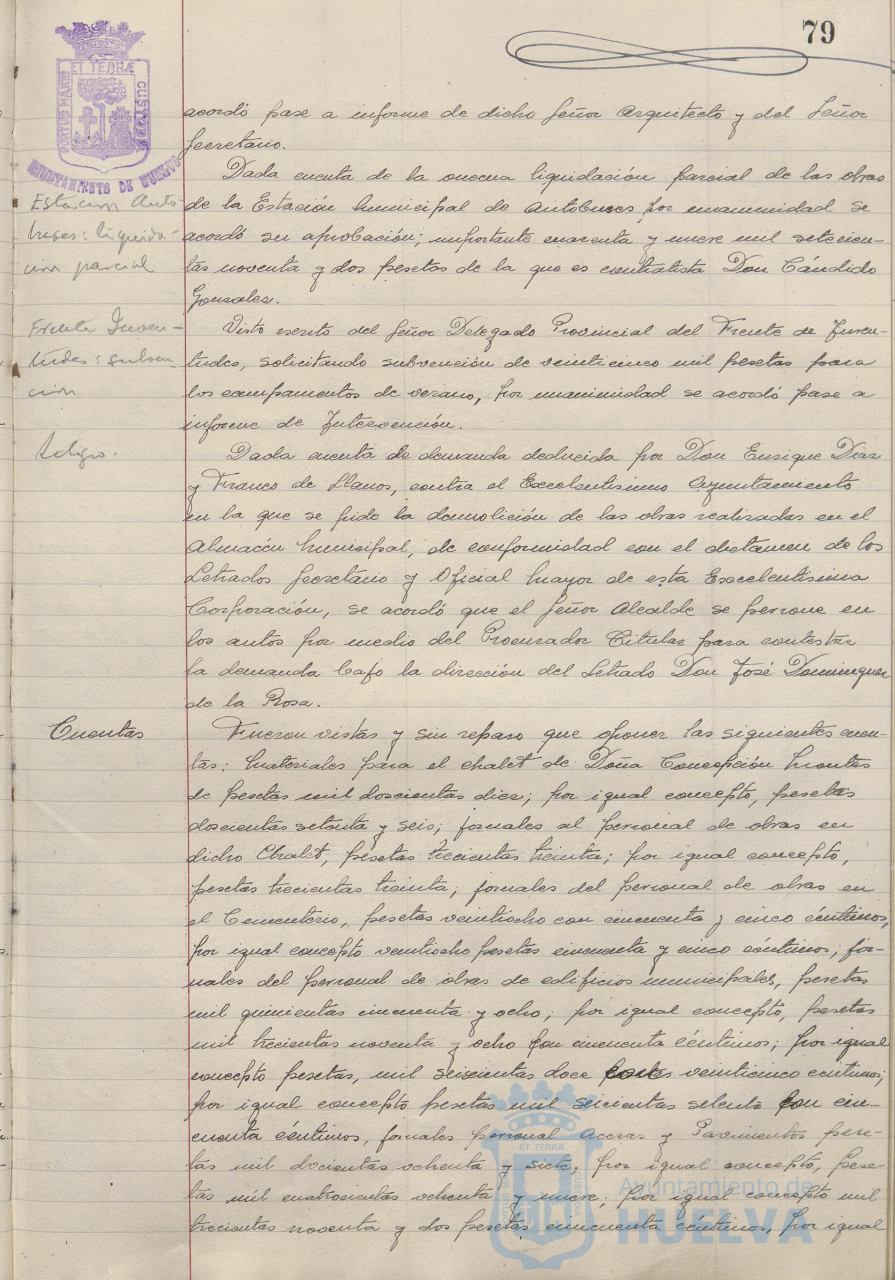 79
ET TERRÆ
PORTUS MARIS
CUSTODIA
AYUNTAMIENTO DE HUELVA
acordó pase a informe de dicho Señor Arquitecto y del Señor
Secretario.
Estacion Auto-
buses: liquida-
cion parcial
Dada cuenta de la oncena liquidación parcial de las obras
de la Estación Municipal de Autobuses por unanimidad se
acordó su aprobación; importante cuarenta y nueve mil setecien-
tas noventa y dos pesetas de la que es contratista Don Cándido
Gonzales.
Frente Juven-
tudes: subven-
cion
Visto escrito del Señor Delegado Provincial del Frente de Juven-
tudes, solicitando subvención de veinticinco mil pesetas para
los campamentos de verano, por unanimidad se acordó pase a
informe de Intervención.
Litigio.
Dada cuenta de demanda deducida por Don Enrique Diaz
y Franco de Llanos, contra el Excelentisimo Ayuntamiento
en la que se pide la demolición de las obras realizadas en el
Almacén Municipal, de conformidad con el dictamen de los
Letrados Secretario y Oficial Mayor de esta Excelentisima
Corporación, se acordó que el Señor Alcalde se persone en
los autos por medio del Procurador Titular para contestar
la demanda bajo la dirección del Letrado Don José Dominguez
de la Rosa.
Cuentas
Fueron vistas y sin reparo que oponer las siguientes cuen-
tas: Materiales para el chalet de Doña Concepción Montes
de pesetas mil doscientas diez; por igual concepto, pesetas
doscientas setenta y seis; jornales al personal de obras en
dicho Chalet, pesetas trecientas treinta; por igual concepto,
pesetas trecientas treinta; jornales del personal de obras en
el Cementerio, pesetas veintiocho con cincuenta y cinco céntimos,
por igual concepto veintiocho pesetas cincuenta y cinco céntimos; jor-
nales del personal de obras de edificios municipales, pesetas
mil quinientas cincuenta y ocho; por igual concepto, pesetas
mil trecientas noventa y ocho con cincuenta céntimos; por igual
concepto pesetas, mil seiscientas doce veinticinco centimos;
por igual concepto pesetas mil seicientas setenta con cin-
cuenta céntimos, jornales personal Aceras y Pavimentos pese-
tas mil docientas ochenta y siete; por igual concepto, pese-
tas mil cuatrocientas ochenta y nueve; por igual concepto mil
trecientas noventa y dos pesetas cincuenta céntimos, por igual
ET TERRÆ
Ayuntamiento de
HUELVA